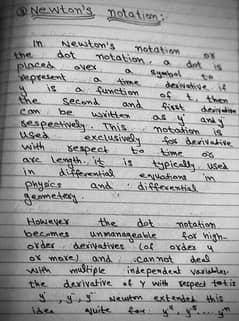 Newton's notation:
In Newton's notation or
the dot notation, a dot is
placed over a symbol to
represent a time derivative if
y is a function of t, then
the second and first derivative
can be written as ÿ and ẏ
respectively. This notation is
used exclusively for derivative
with respect to time or
arc length. it is typically used
in differential equations in
physics and differential
geometery.
However the dot notation
becomes unmanageable for high-
order derivatives (of orders 4
or more) and cannot deal
with multiple independent variables.
the derivative of y with respect to t is
Newton extended this
idea quite far: